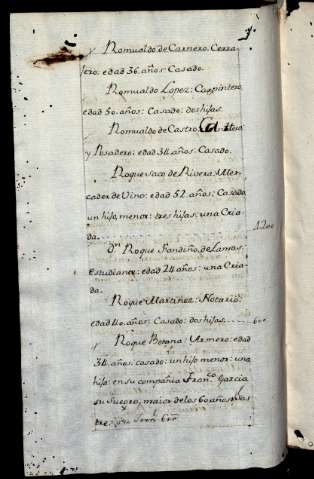 y Romualdo de Carnero. Cerra
gero: edad 36. años: Casado.
Romualdo Lopez: Carpintero
edad 50. años: Casado: dos hijas.
Romualdo de Castro,
y Posadero: edad 34. años: Casado.
Roque saco de Rivera: Mer
cader de Vino: edad 52. años: Casado
un hijo, menor: tres hijas: una Cria
da.
Dn. Roque Fandiño, de Lamas,
Estudiante: edad 24 años: una Cria
da.
Roque Martinez: Notario:
edad 40. años: Casado: dos hijas. 600
y Roque Betana: Armero: edad
34. años: casado: un hijo menor: una
hija: en su compañia Franco. Garcia
su suegro, maior de los 60 años